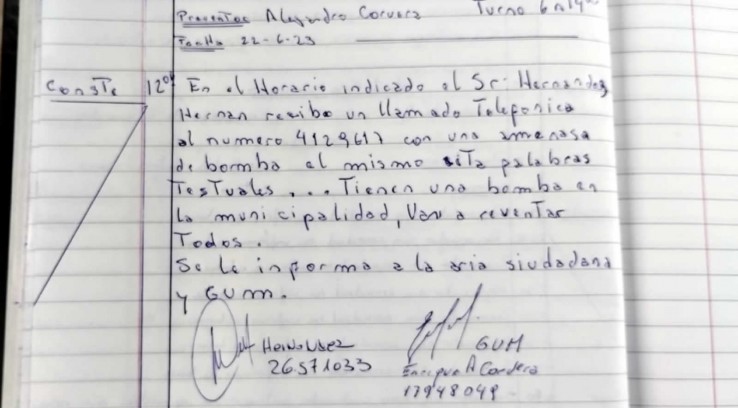 Preventor Alejandro Corvera Turno 6 a 14
Fecha 22-6-23
Conste 12:00 En el Horario indicado el Sr: Hernandez
Hernan recibe un llamado Telefonico
al numero 4129617 con una amenasa
de bomba el mismo sita palabras
Testuales... Tienen una bomba en
la municipalidad, Van a reventar
Todos.
Se le informa a la aria siudadana
y GUM.
Hernandez GUM
26571033 Enrique A Cordero
17948049